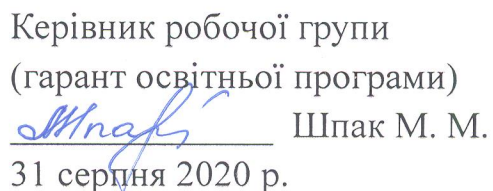 Керівник робочої групи
(гарант освітньої програми)
Шпак Шпак М. М.
31 серпня 2020 р.